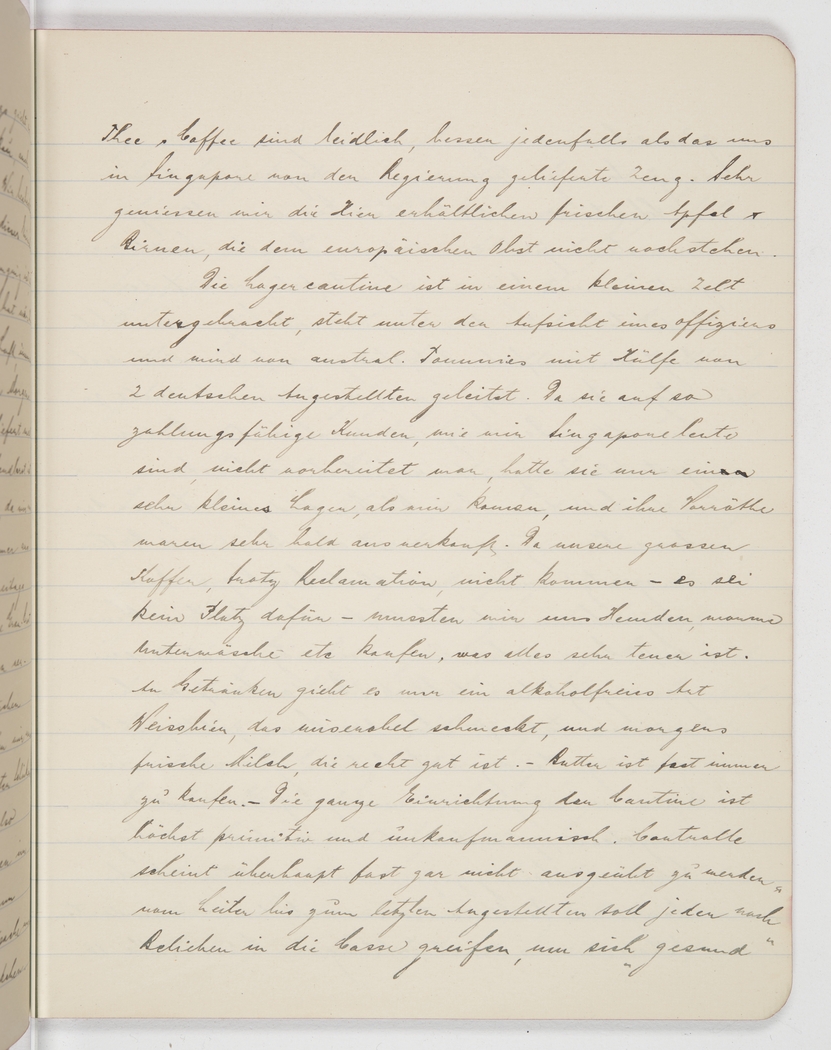 Thee & Caffee sind leidlich, besser jedenfalls als das uns
in Singapore von der Regierung gelieferte Zeug. Sehr
geniessen wir die hier erhältlichen frischen Äpfel &
Birnen, die dem europäischen Obst nicht nachstehen.
Die Lagercantine ist in einem kleinen Zelt
untergebracht, steht unter der Aufsicht eines Offiziers
und wird von austral. Tommies mit Hülfe von
2 deutschen Angestellten geleitet. Da sie auf so
zahlungsfähige Kunden, wie wir Singaporeleute
sind, nicht vorbereitet war, hatte sie nur ein
sehr kleines Lager, als wir kamen, und ihre Vorräthe
waren sehr bald ausverkauft. Da unsere grossen
Koffer, trotz Reclamation, nicht kommen – es sei
kein Platz dafür – mussten wir uns Hemden, warme
Unterwäsche etc kaufen, was alles sehr teuer ist.
An Getränken giebt es nur ein alkoholfreies Art
Weissbier, das miserabel schmeckt, und morgens
frische Milch, die recht gut ist. – Butter ist fast immer
zu kaufen. – Die ganze Einrichtung der Cantine ist
höchst primitiv und unkaufmannisch. Controlle
scheint überhaupt fast gar nicht ausgeübt zu werden,
vom Leiter bis zum letzten Angestellten soll jeder "nach
Belieben" in die Casse greifen, um sich "gesund